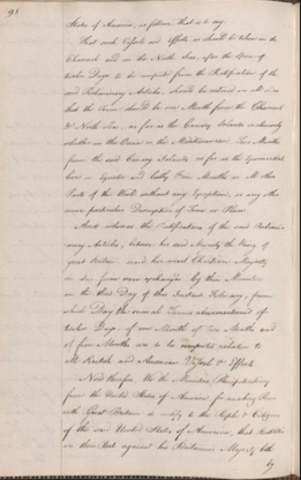 98
States of America, as follows, that is to say.
That such Vessels and Effects as should be taken in the
Channel and in the North Seas, after the Space of
twelve Days to be computed from the Ratification of the
said Preliminary Articles, should be restored on all sides
that the Term should be one Month from the Channel
& North Seas, as far as the Canary Islands inclusively
whether in the Ocean or the Mediterranean Two Months
from the said Canary Islands as far as the Equinoctial
Line or Equator and lastly Five Months in all other
Parts of the World without any Exception, or any other
more particular Description of Time or Place
And whereas the Ratifications of the said Prelimin-
ary Articles, between his said Majesty the King of
great Britain and his most Christian Majesty
in due form were exchanged by their Ministers
on the third Day of this Instant February, from
which Day the several Terms abovementioned of
twelve Days, of one Month of Two Months and
of five Months are to be computed relative to
all British and American Vessels & Effects
Now therefore, We the Ministers Plenipotentiary
from the United States of America for making Peace
with Great Britain do notify to the People & Citizens
of the said United States of America, that Hostilities
on their Part against his Britannic Majesty both
by